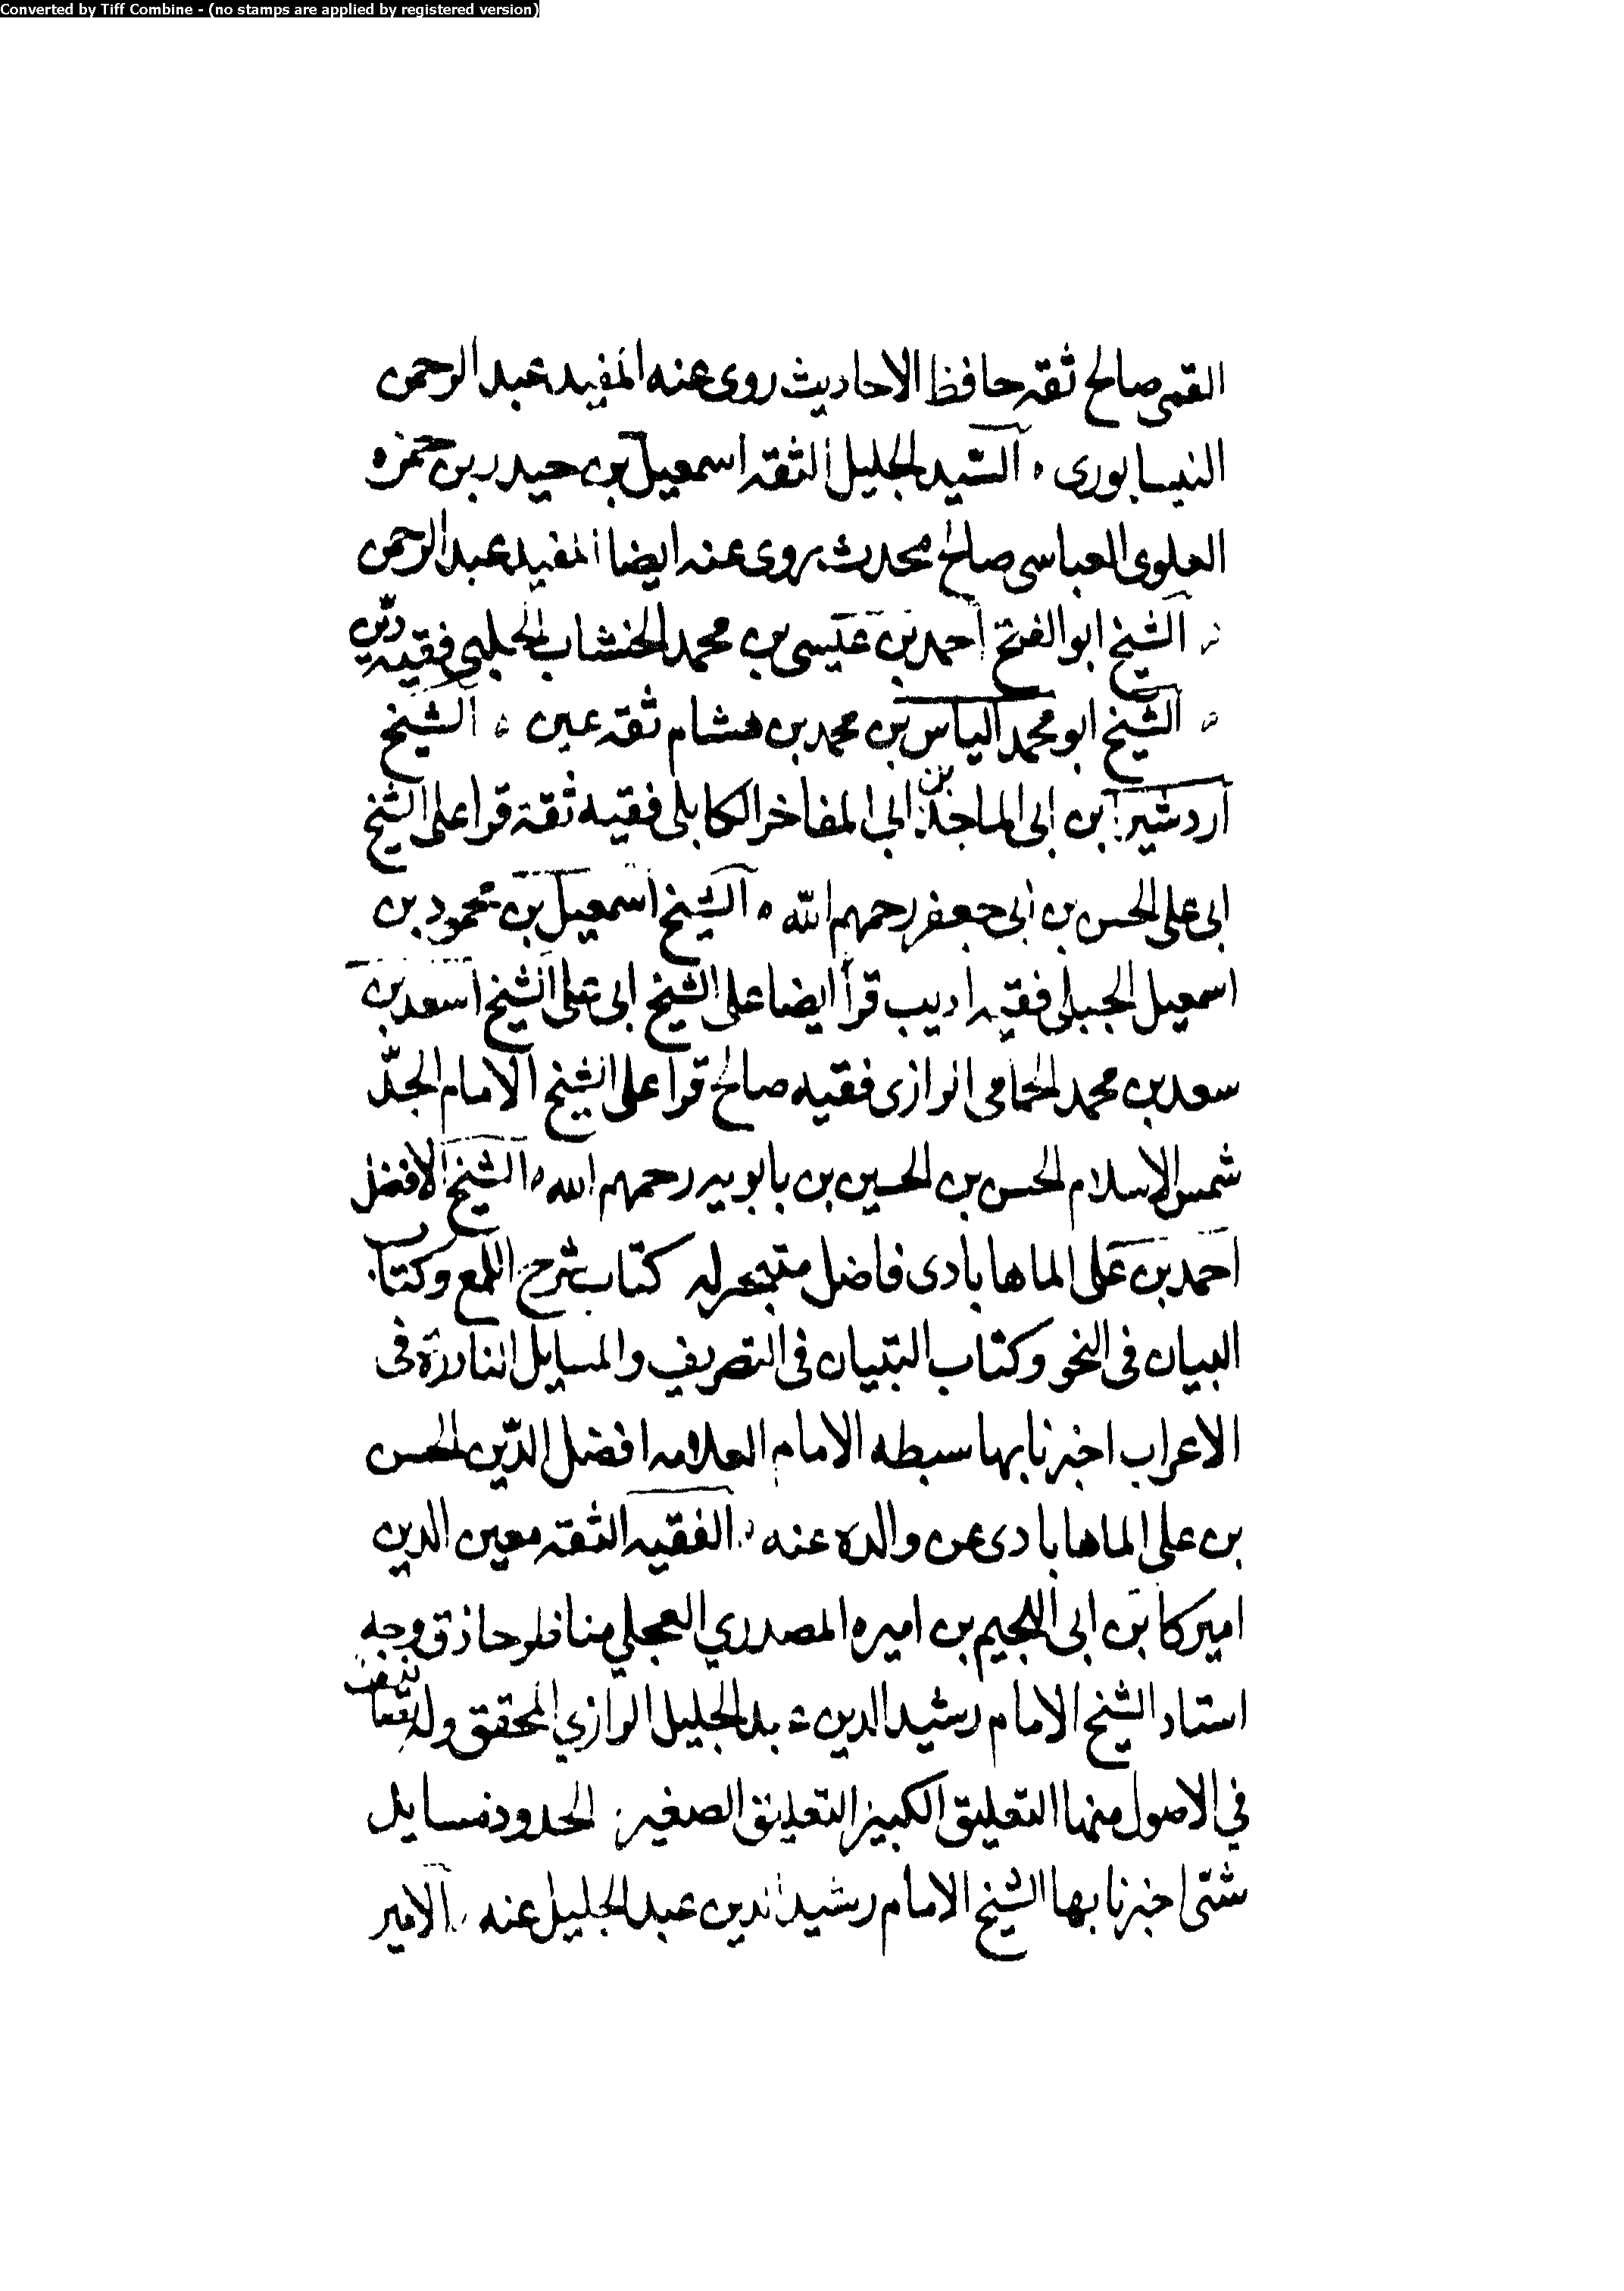 Converted by Tiff Combine - (no stamps are applied by registered version)
القمى صالح ثقه حافظ الاحاديث روى عنه المفيد عبد الرحمن
النيسابورى ه السيد الجليل الثقه اسمعيل بن حيدر بن حمزه
العلوى العباسى صالح محدث روى عنه ايضا المفيد عبد الرحمن
ه الشيخ ابو الفتح احمد بن عيسى بن محمد الخشاب الحلبى فقيه ديّن
ه الشيخ ابو محمد الياس بن محمد بن هشام ثقه عين ه الشيخ
اردشير بن ابى الماجد بن ابى المفاخر الكابلى فقيه ثقة قرا على الشيخ
ابى على الحسن بن ابى جعفر رحمهم الله ه الشيخ اسمعيل بن محمود بن
اسمعيل الجبلى فقيه اديب قرأ ايضا على الشيخ ابى على الشيخ اسعد بن
سعد بن محمد الحمامى الرازى فقيه صالح قرا على الشيخ الامام الجدّ
شمس الاسلام الحسن بن الحسين بن بابويه رحمهم الله ه الشيخ الافضل
احمد بن على الماهابادى فاضل متبحر له كتاب شرح اللمع وكتاب
البيان فى النحو وكتاب التبيان فى التصريف والمسايل النادرة فى
الاعراب اخبرنا بها سبطه الامام العلامه افضل الدّين الحسن
بن على الماهابادى عن والده عنه ه الفقيه الثقه معين الدين
اميركا بن ابى اللجيم بن اميره المصدري العجلي مناظر حاذق وجه
استاد الشيخ الامام رشيد الدين عبد الجليل الرازي المحقق وله تصانيف
في الاصول منها التعليق الكبير التعليق الصغير الحدود مسايل
شتى اخبرنا بها الشيخ الامام رشيد الدين عبد الجليل عنه ه الامير